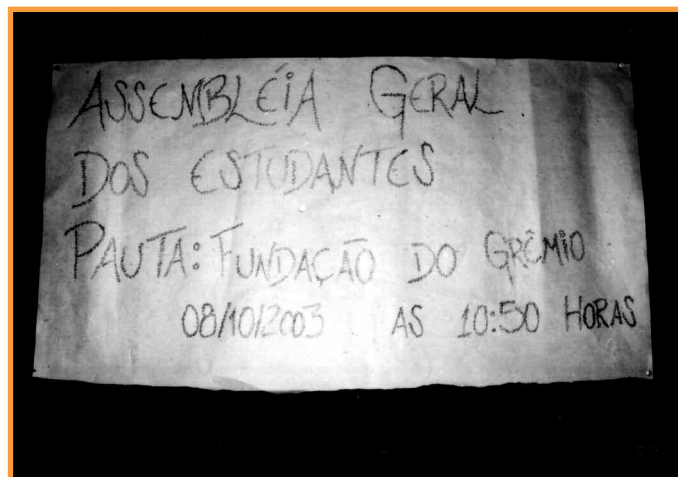 ASSEMBLÉIA GERAL
DOS ESTUDANTES
PAUTA: FUNDAÇÃO DO GRÊMIO
08/10/2003 AS 10:50 HORAS